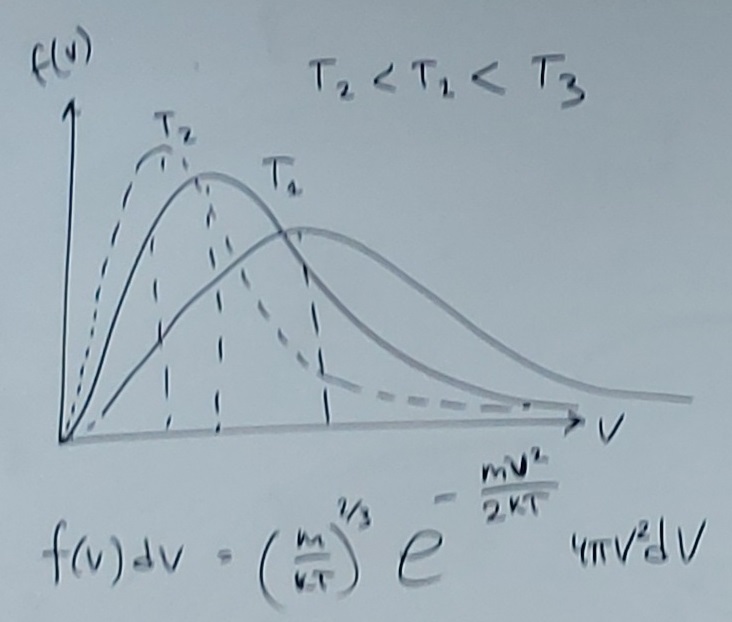 f(v)
T₂ < T₁ < T₃
T₂
T₁
V
f(v) dv = (m/KT)^2/3 e^-mv²/2KT 4πv²dv